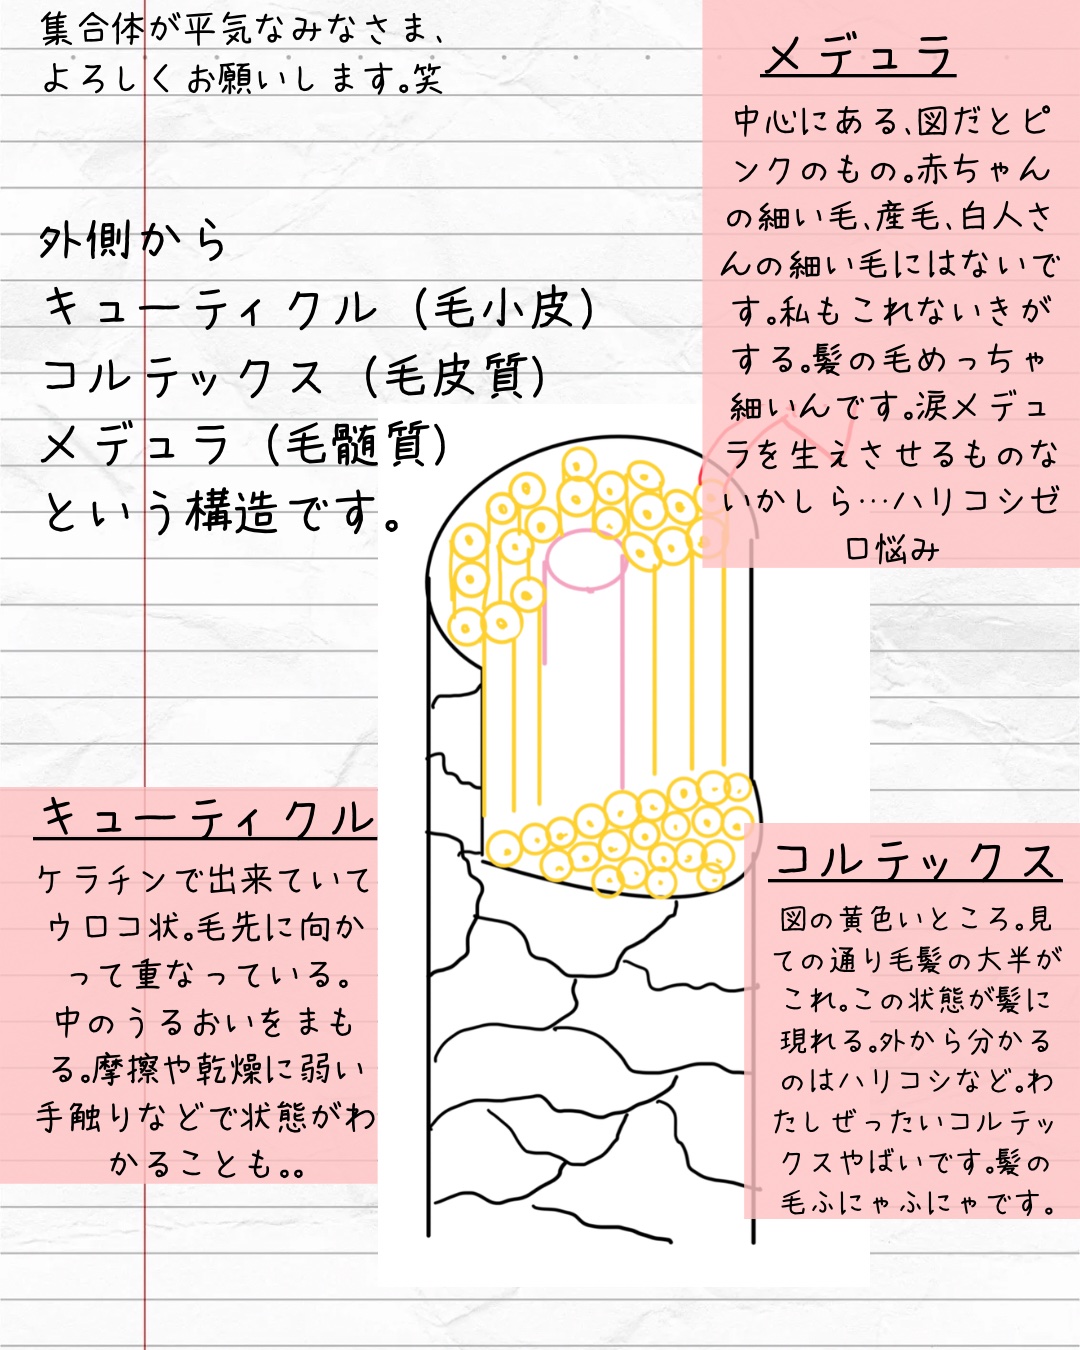 集合体が平気なみなさま、
よろしくお願いします。笑
外側から
キューティクル（毛小皮）
コルテックス（毛皮質）
メデュラ（毛髄質）
という構造です。
メデュラ
中心にある、図だとピ
ンクのもの。赤ちゃん
の細い毛、産毛、白人さ
んの細い毛にはないで
す。私もこれないきが
する。髪の毛めっちゃ
細いんです。涙メデュ
ラを生えさせるものな
いかしら…ハリコシゼ
ロ悩み
キューティクル
ケラチンで出来ていて
ウロコ状。毛先に向か
って重なっている。
中のうるおいをまも
る。摩擦や乾燥に弱い
手触りなどで状態がわ
かることも。。
コルテックス
図の黄色いところ。見
ての通り毛髪の大半が
これ。この状態が髪に
現れる。外から分かる
のはハリコシなど。わ
たしぜったいコルテッ
クスやばいです。髪の
毛ふにゃふにゃです。